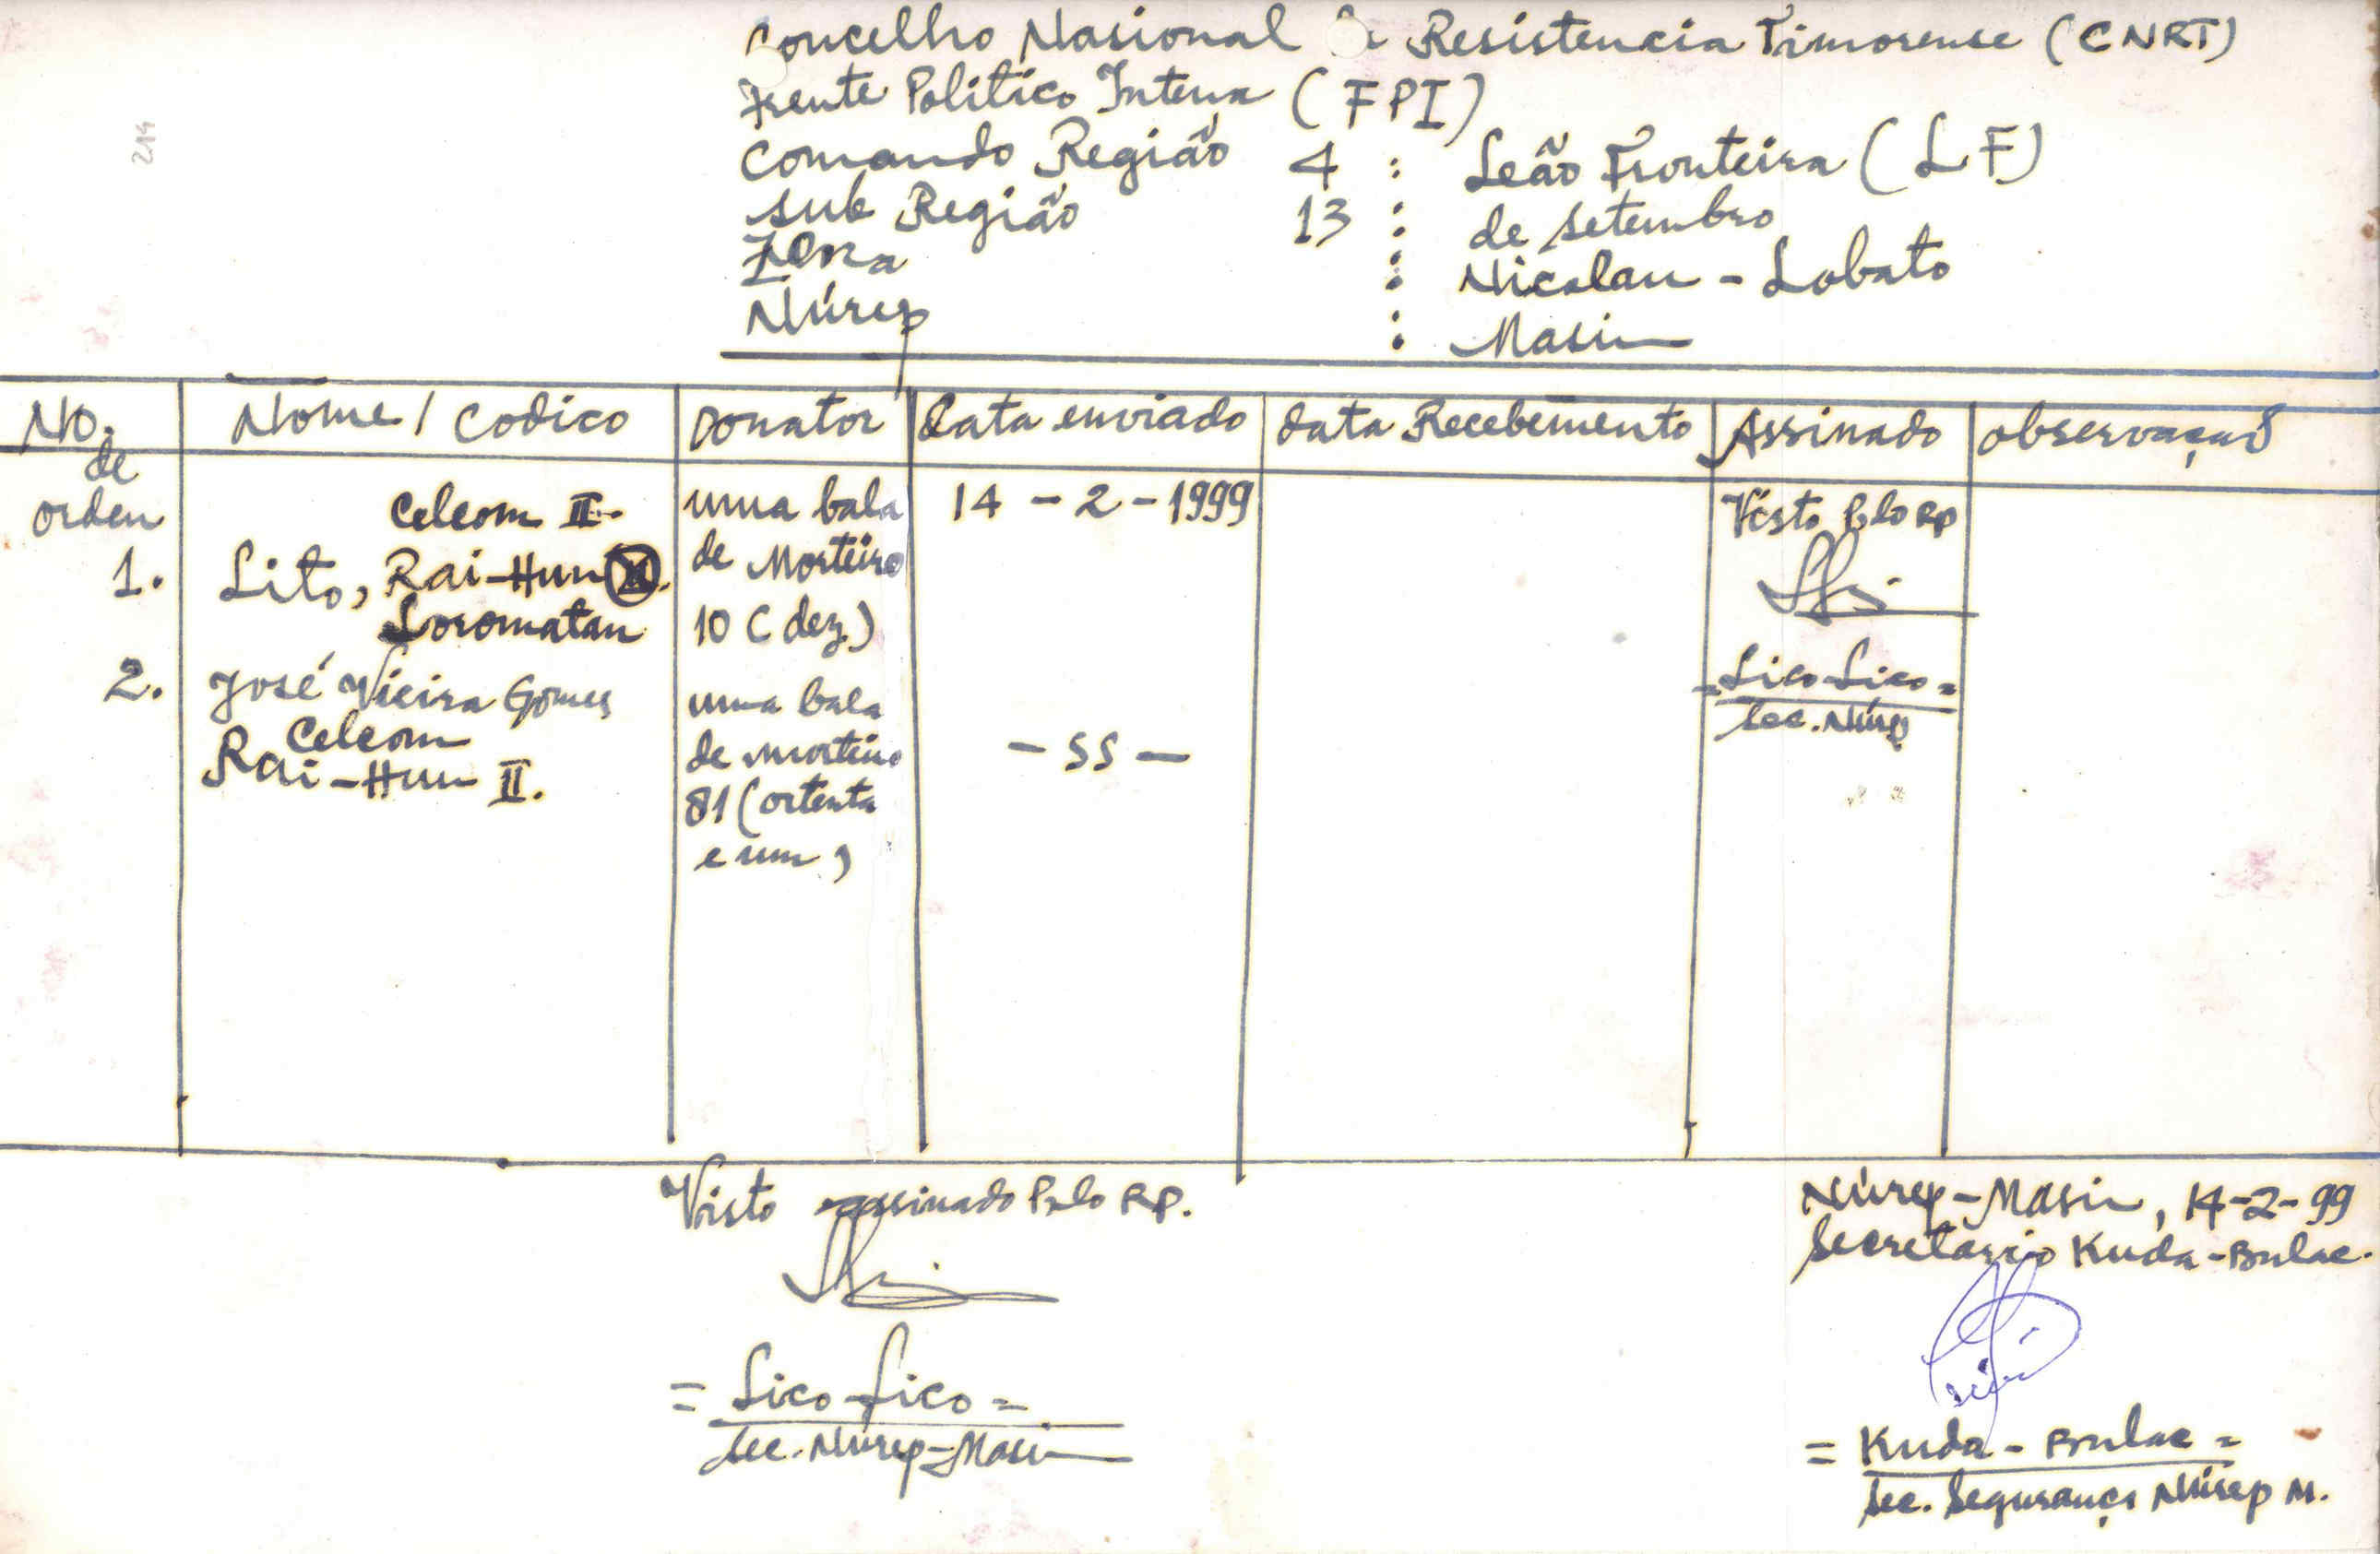 Concelho Nasional de Resistencia Timorense (CNRT)
Frente Politico Interna (FPI)
Comando Região 4 : Leão Fronteira (LF)
Sub Região 13 : de Setembro
Zona : Nicolau - Lobato
Núrep : Masin
219
No. de orden
Nome / Codico
Donator
data enviado
data Recebemento
Assinado
observação
1.
Celcom II.
Lito, Rai-Hun
Loromatan
uma bala
de Morteiro
10 (dez)
14 - 2 - 1999
Visto Pelo RP
= Lico Lico =
Sec. Núrep
2.
José Vieira Gomes
Celcom
Rai-Hun II.
uma bala
de morteiro
81 (ortenta
e um)
- SS -
Visto assinado Pelo RP.
= Lico-Lico =
Sec. Núrep-Masin
Núrep-Masin, 14-2-99
Secretario Kuda-Bulac.
= Kuda - Bulac =
Sec. Segurança Núrep M.